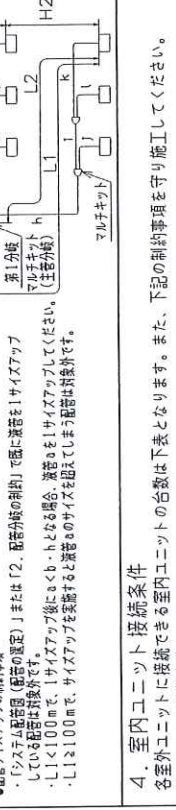 ・「システム配管図（配管の選定）」または「2．配管分岐の制約」で既に液管を1サイズアップ
している配管は対象外です。
・L1＜100mで、1サイズアップ後にa＜b・hとなる場合、液管aを1サイズアップしてください。
・L1≧100mで、サイズアップを実施すると液管aのサイズを超えてしまう配管は対象外です。
第1分岐
マルチキット
(主管分岐)
h
L1
L2
H2
k
i
j
l
マルチキット
4．室内ユニット接続条件
各室外ユニットに接続できる室内ユニットの台数は下表となります。また、下記の制約事項を守り施工してください。